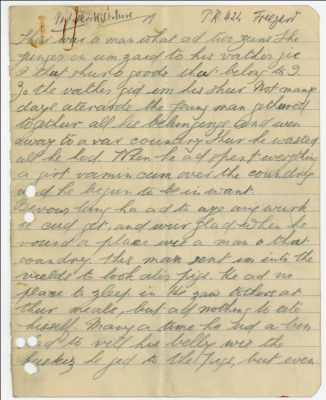 1 TR 422
Thur wer a man what ad two zuns. The
zunges on um zaid to his vather gie
I that shur o goods that belong to I.
Zo the vather gid im his shur. Not many
days aterwards the young man gathered
together all his belongings and wen
away to a var country. Thur he wasted
all he had. When he ad spent everything
a girt vamin cum over the coundry
and he begun to be in want.
Bevour long ha ad to age any wurk
he cud get, and wur glad when he
vound a place wie a man o that
coundry. This man sent im into the
vields to look ater pigs. He ad no
place to zleep in. He zaw others at
their meals, but ad nothing to eate
hisself. Many a time he wud a bin
glad to vill his belly wie the
he gid to the pigs, but even